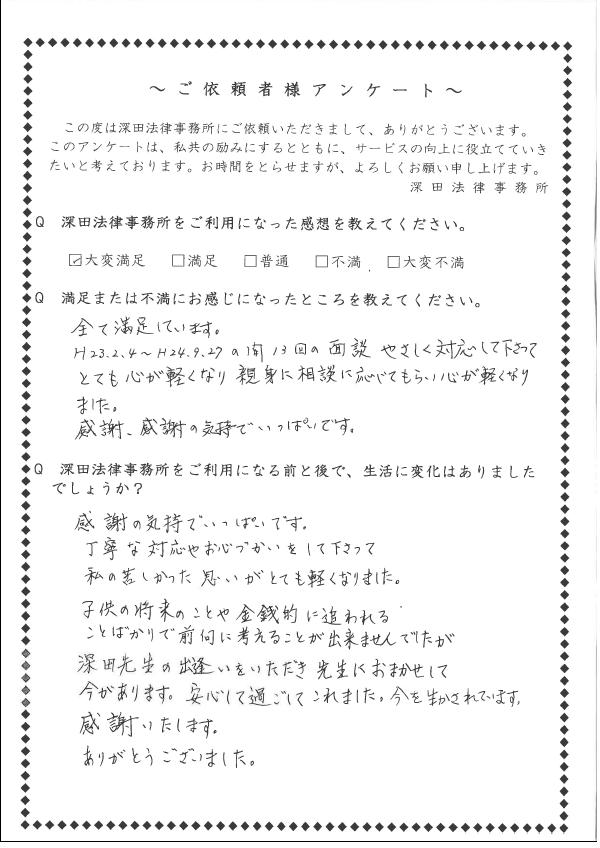 ～ご依頼者様アンケート～
この度は深田法律事務所にご依頼いただきまして、ありがとうございます。
このアンケートは、私共の励みにするとともに、サービスの向上に役立てていき
たいと考えております。お時間をとらせますが、よろしくお願い申し上げます。
深田法律事務所
Q 深田法律事務所をご利用になった感想を教えてください。
☑大変満足 □満足 □普通 □不満 □大変不満
Q 満足または不満にお感じになったところを教えてください。
全て満足しています。
H23.2.4～H24.9.27の間13回の面談 やさしく対応して下さって
とても心が軽くなり 親身に相談に応じてもらい心が軽くなり
ました。
感謝、感謝の気持でいっぱいです。
Q 深田法律事務所をご利用になる前と後で、生活に変化はありました
でしょうか？
感謝の気持でいっぱいです。
丁寧な対応やお心づかいをして下さって
私の苦しかった思いがとても軽くなりました。
子供の将来のことや金銭的に追われる
ことばかりで前向に考えることが出来ませんでたが
深田先生の出逢いをいただき先生におまかせして
今があります。安心して過ごしてこれました。今を生かされています。
感謝いたします。
ありがとうございました。